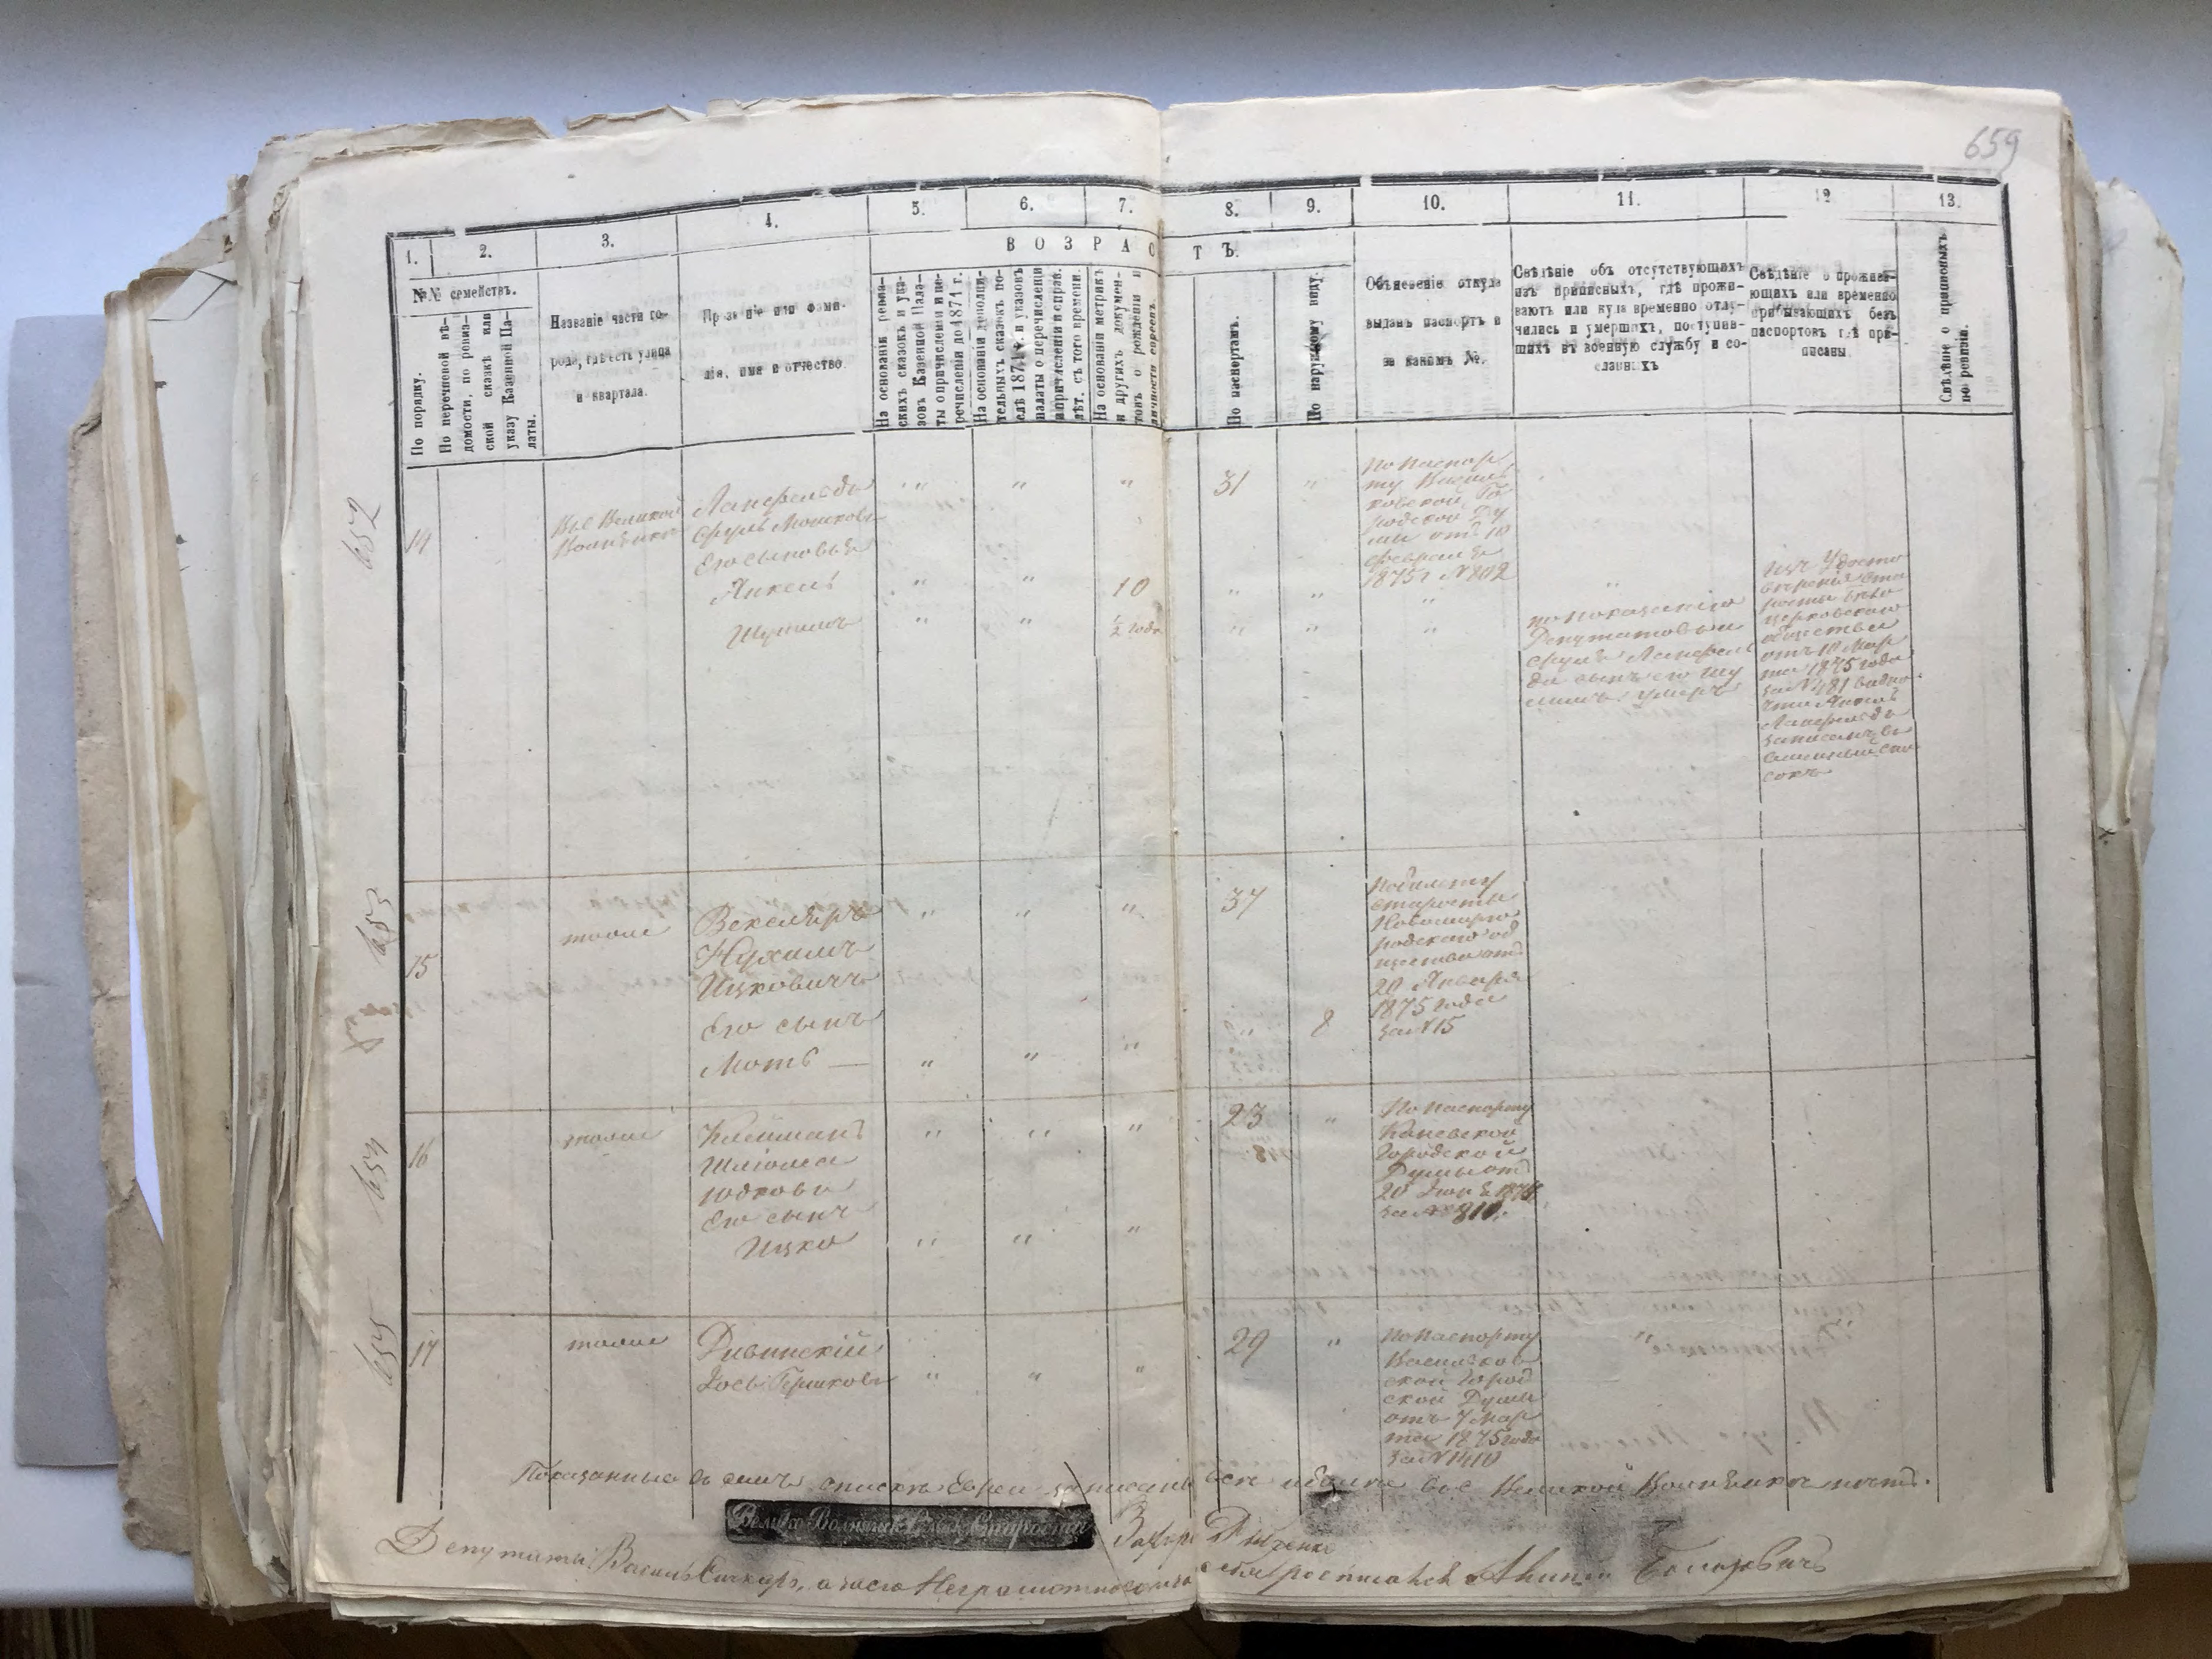 659
1.
2.
3.
4.
5.
6.
7.
8.
9.
10.
11.
12
13.
В О З Р А С Т Ъ.
№№ семействъ.
По порядку.
По перечневой вѣ-
домости, по ревиз-
ской сказкѣ или
указу Казенной Па-
латы.
Названіе части го-
рода, гдѣ есть улица
и квартала.
Прозваніе или фами-
лія, имя и отчество.
На основаніи реви-
скихъ сказокъ и ука-
зовъ Казенной Пала-
ты о причисленіи и пе-
речисленіи до 1874 г.
На основаніи дополни-
тельныхъ сказокъ по-
слѣ 1874 г. и указовъ
палаты о перечисленіи
и причисленіи и справ.
лѣт. съ того времени.
На основаніи метрикъ
и другихъ докумен-
товъ о рожденіи и
личности евреевъ.
По паспортамъ.
По наружному виду.
Объясненіе откуда
выданъ паспортъ и
за какимъ №.
Свѣдѣніе объ отсутствующихъ
изъ приписныхъ, гдѣ прожи-
ваютъ или куда временно отлу-
чились и умершихъ, поступив-
шихъ въ военную службу и со-
сланныхъ
Свѣдѣніе о прожива-
ющихъ или временно
прибывающихъ безъ
паспортовъ гдѣ при-
писаны.
Свѣдѣніе о приписныхъ
по ревизіи.
652
14
Въ с Великой
Ланфельдъ
Срулъ Мошковъ
Его сыновья
Янкель
Шулимъ
10
1/2 года
31
по паспор
ту Василь
ковской Го
родской Ду
мы отъ 10
февраля
1875 г №202
по показанію
Депутатовъ и
Сруля Ланфель
да сынъ его Шу
лимъ умеръ
изъ Удосто
веренія Ста
росты Бѣло
церковскаго
общества
отъ 10 Мар
та 1875 года
за №481 видно
что Янкель
Ланфельдъ
записанъ въ
спи
сокъ
653
15
тоже
Векслеръ
Нухимъ
Ицковичъ
Его сынъ
Мотъ —
37
8
по билету
старосты
Новомирго
родскаго об
щества отъ
20 Января
1875 года
за №15
654
16
тоже
Клейманъ
Шлиома
Юдковъ
Его сынъ
Ицко
23
По паспорту
Каневской
Городской
Думы отъ
20
за №810.
655
17
тоже
Дивинскій
Іось Гершковъ
29
По паспорту
Васильков
ской Город
ской Думы
отъ 7 Мар
та 1875 года
за №1410
Показанные въ семъ списке Евреи записаны все въ с Великой
Велико-
Депутаты: Василь а за его Неграмотного